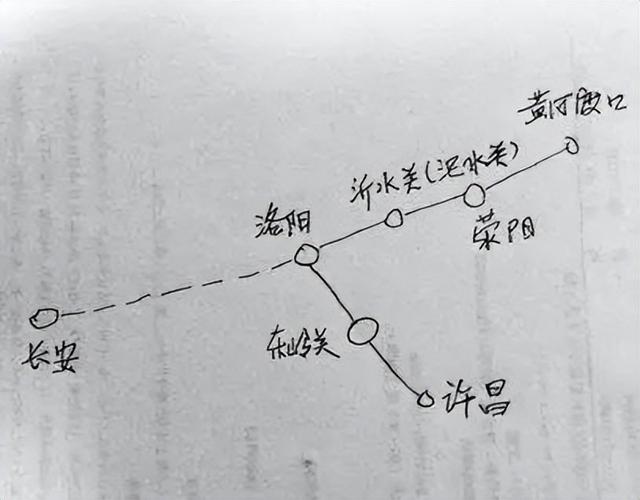 黄河渡口
沂水关(汜水关)
荥阳
洛阳
东岭关
长安
许昌